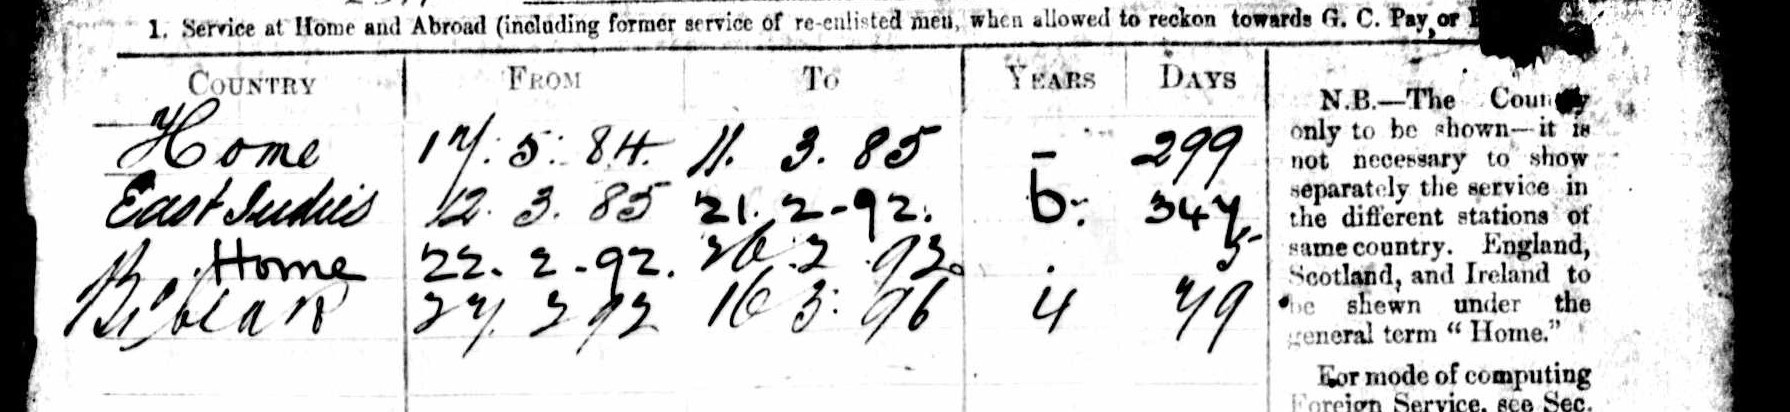 1. Service at Home and Abroad (including former service of re-enlisted men, when allowed to reckon towards G. C. Pay, or
COUNTRY FROM TO YEARS DAYS
Home 17. 5. 84. 11. 3. 85 - 299
East Indies 12. 3. 85 21. 2-92. 6. 347
Home 22. 2-92. 26. 2 92. 5
27. 2 92 16 3. 96 4 19
N.B.—The Country
only to be shown—it is
not necessary to show
separately the service in
the different stations of
same country. England,
Scotland, and Ireland to
be shewn under the
general term "Home."
For mode of computing
Foreign Service, see Sec.